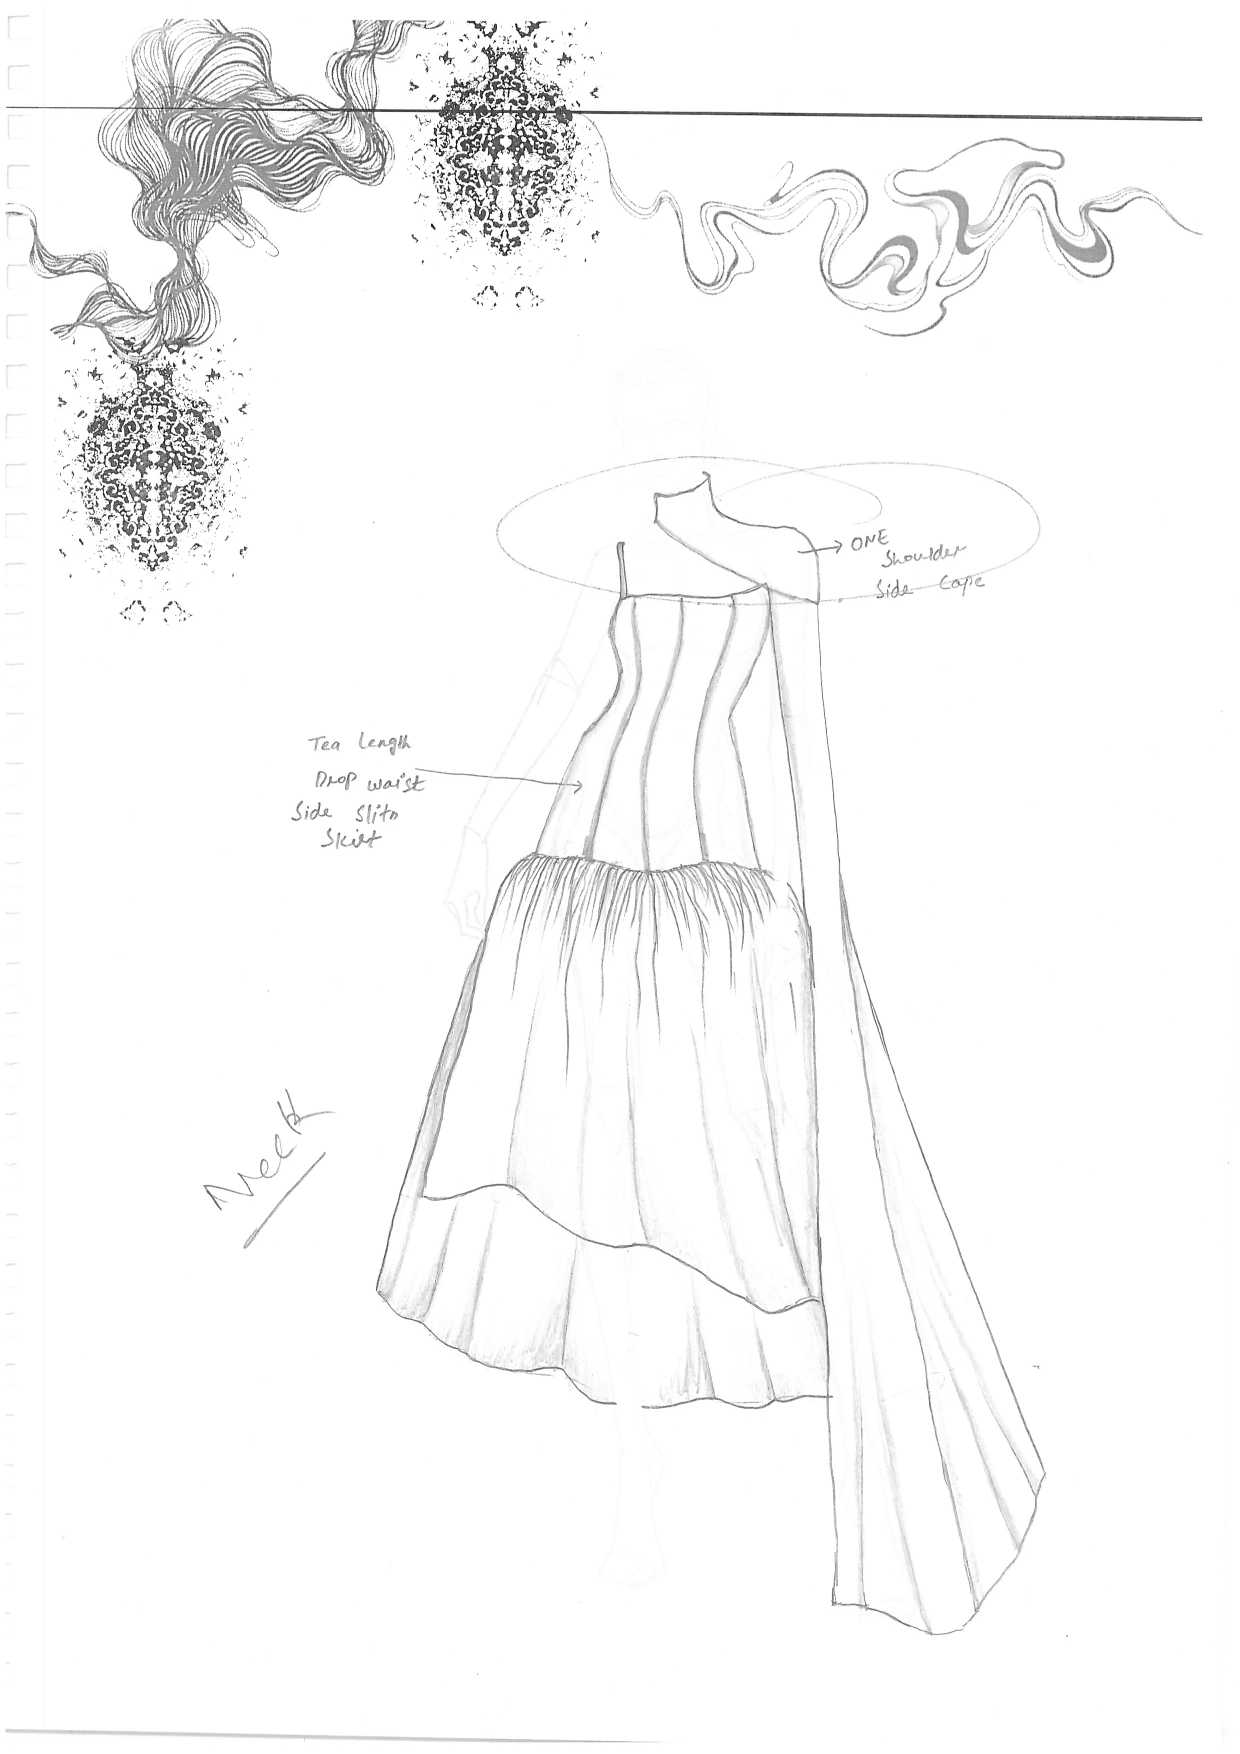 ONE
Shoulder
Side Cape
Tea Length
Drop waist
Side Slits
Skirt